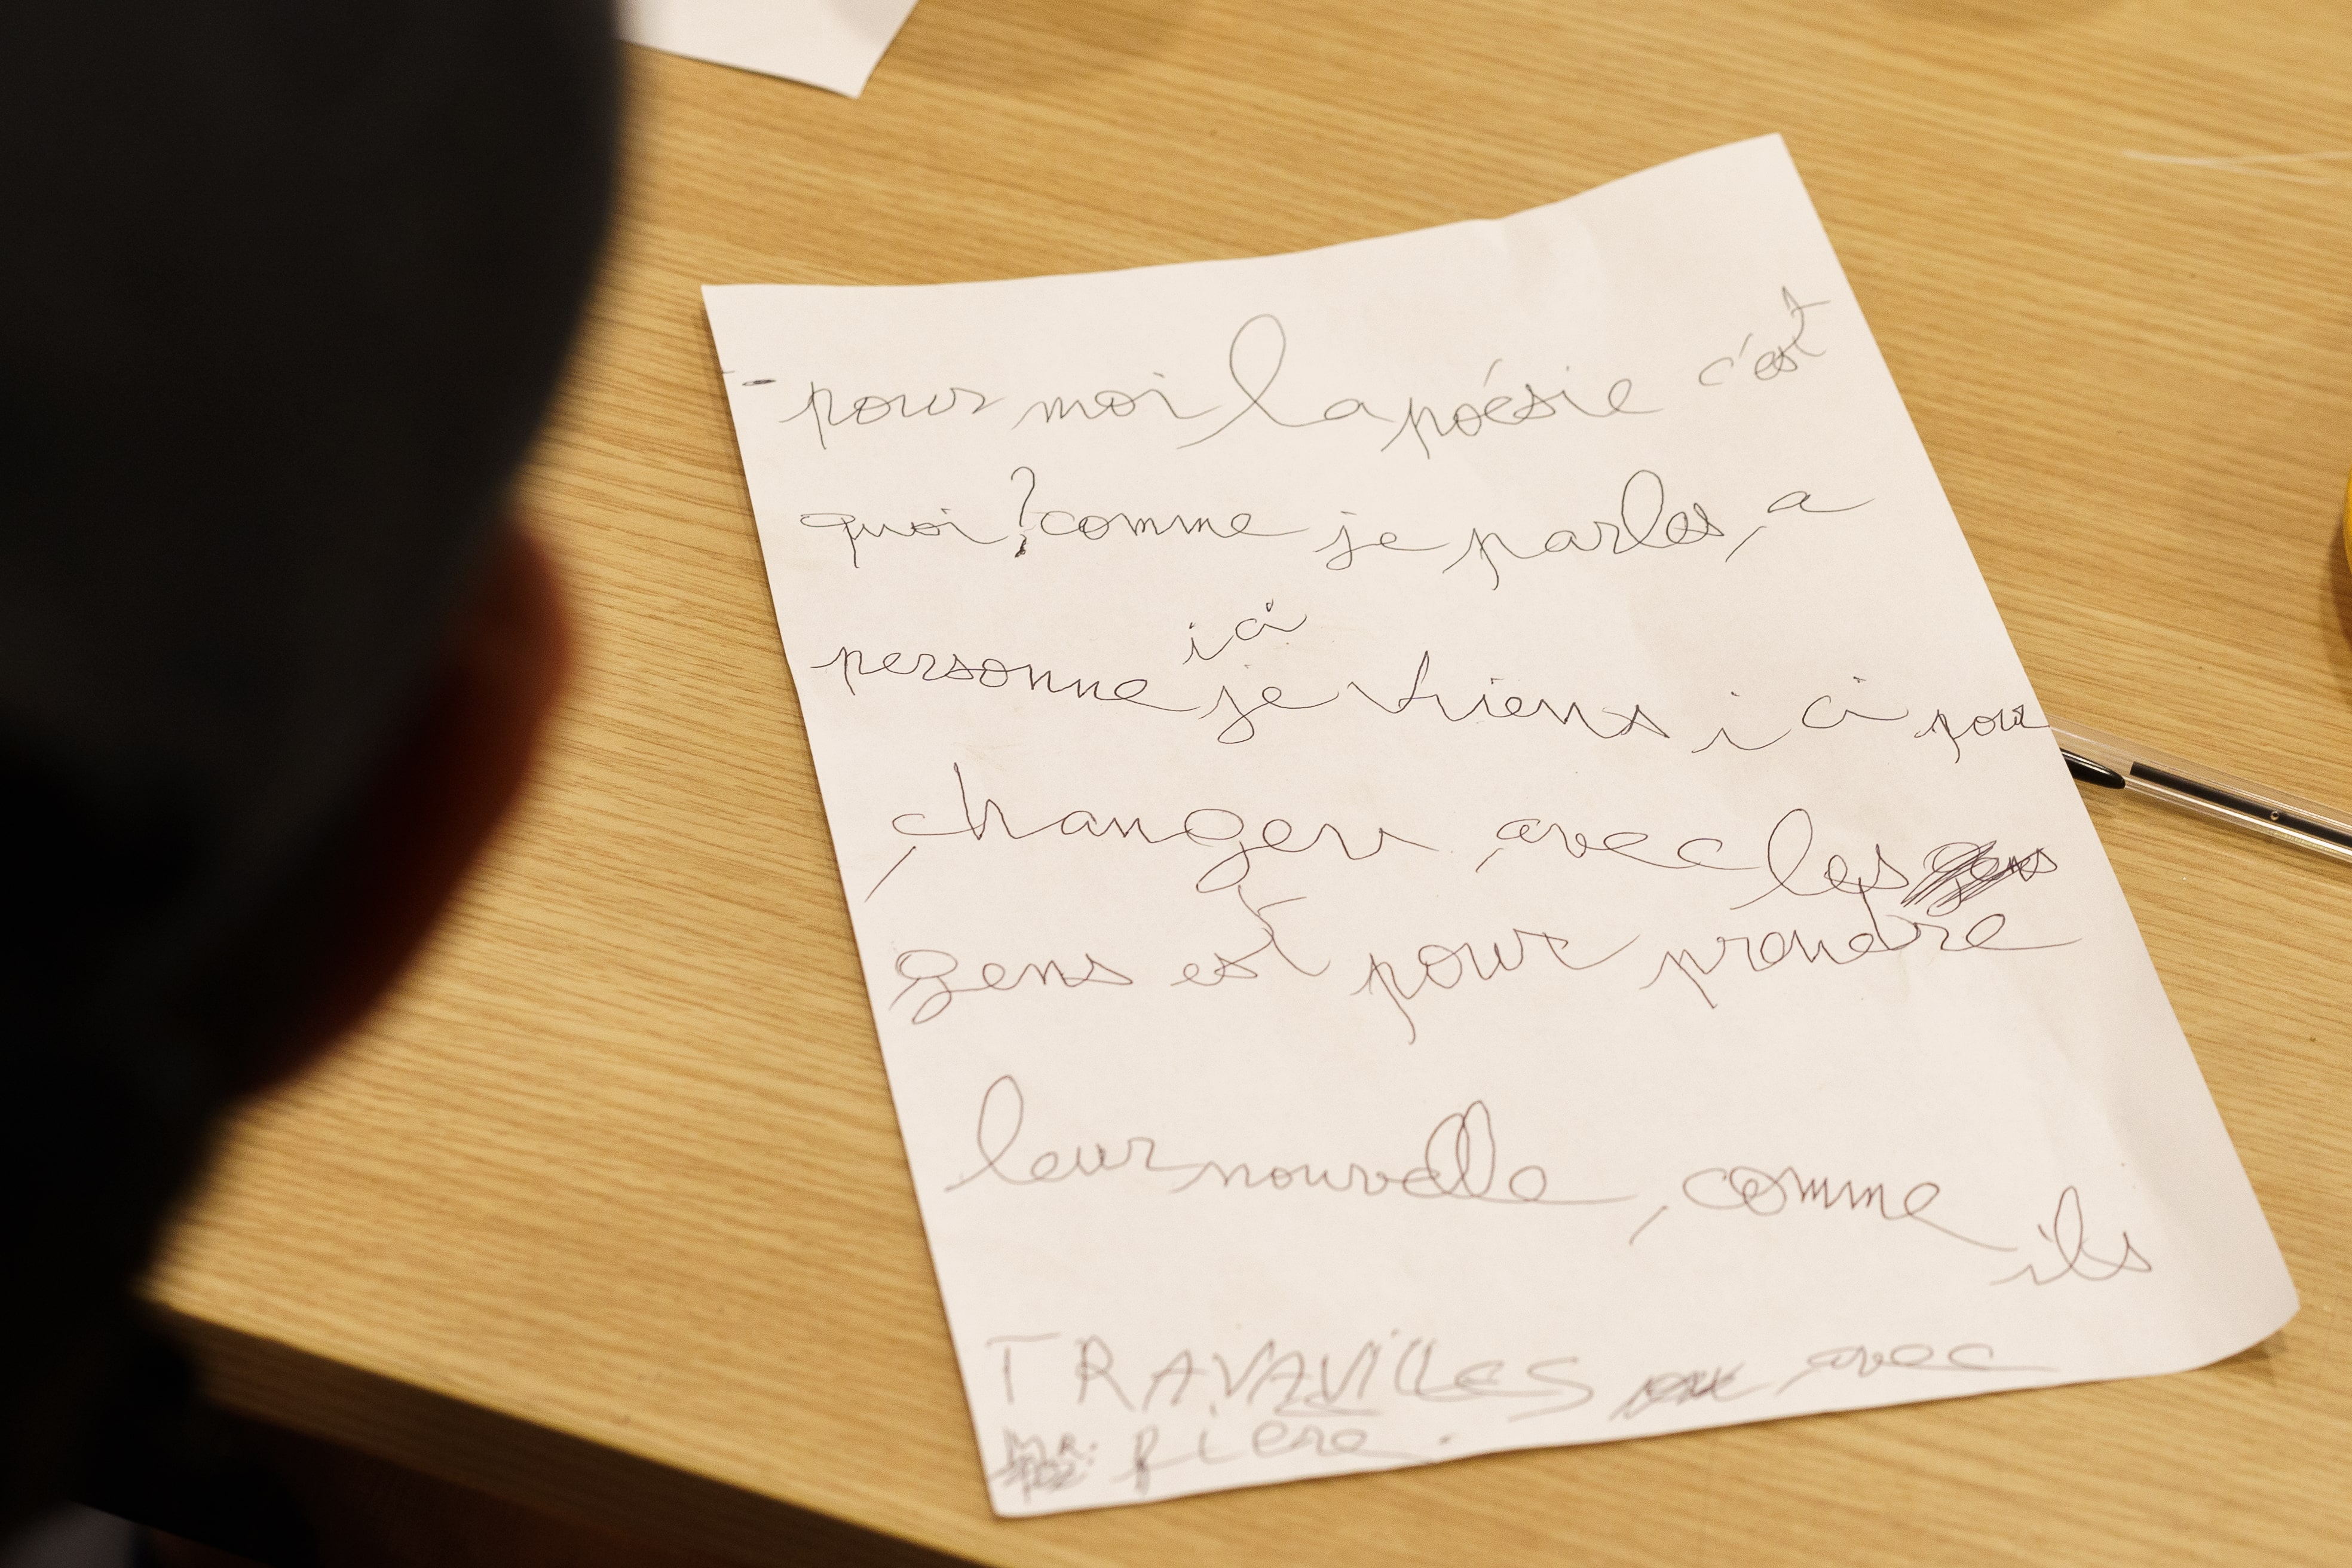 - pour moi la poésie c'est
quoi ? comme je parles, a
personne ici je viens i ci pour
changer, avec les gens
gens est pour prendre
leur nouvelle, comme ils
TRAVAVILLES avec
MR: pière.